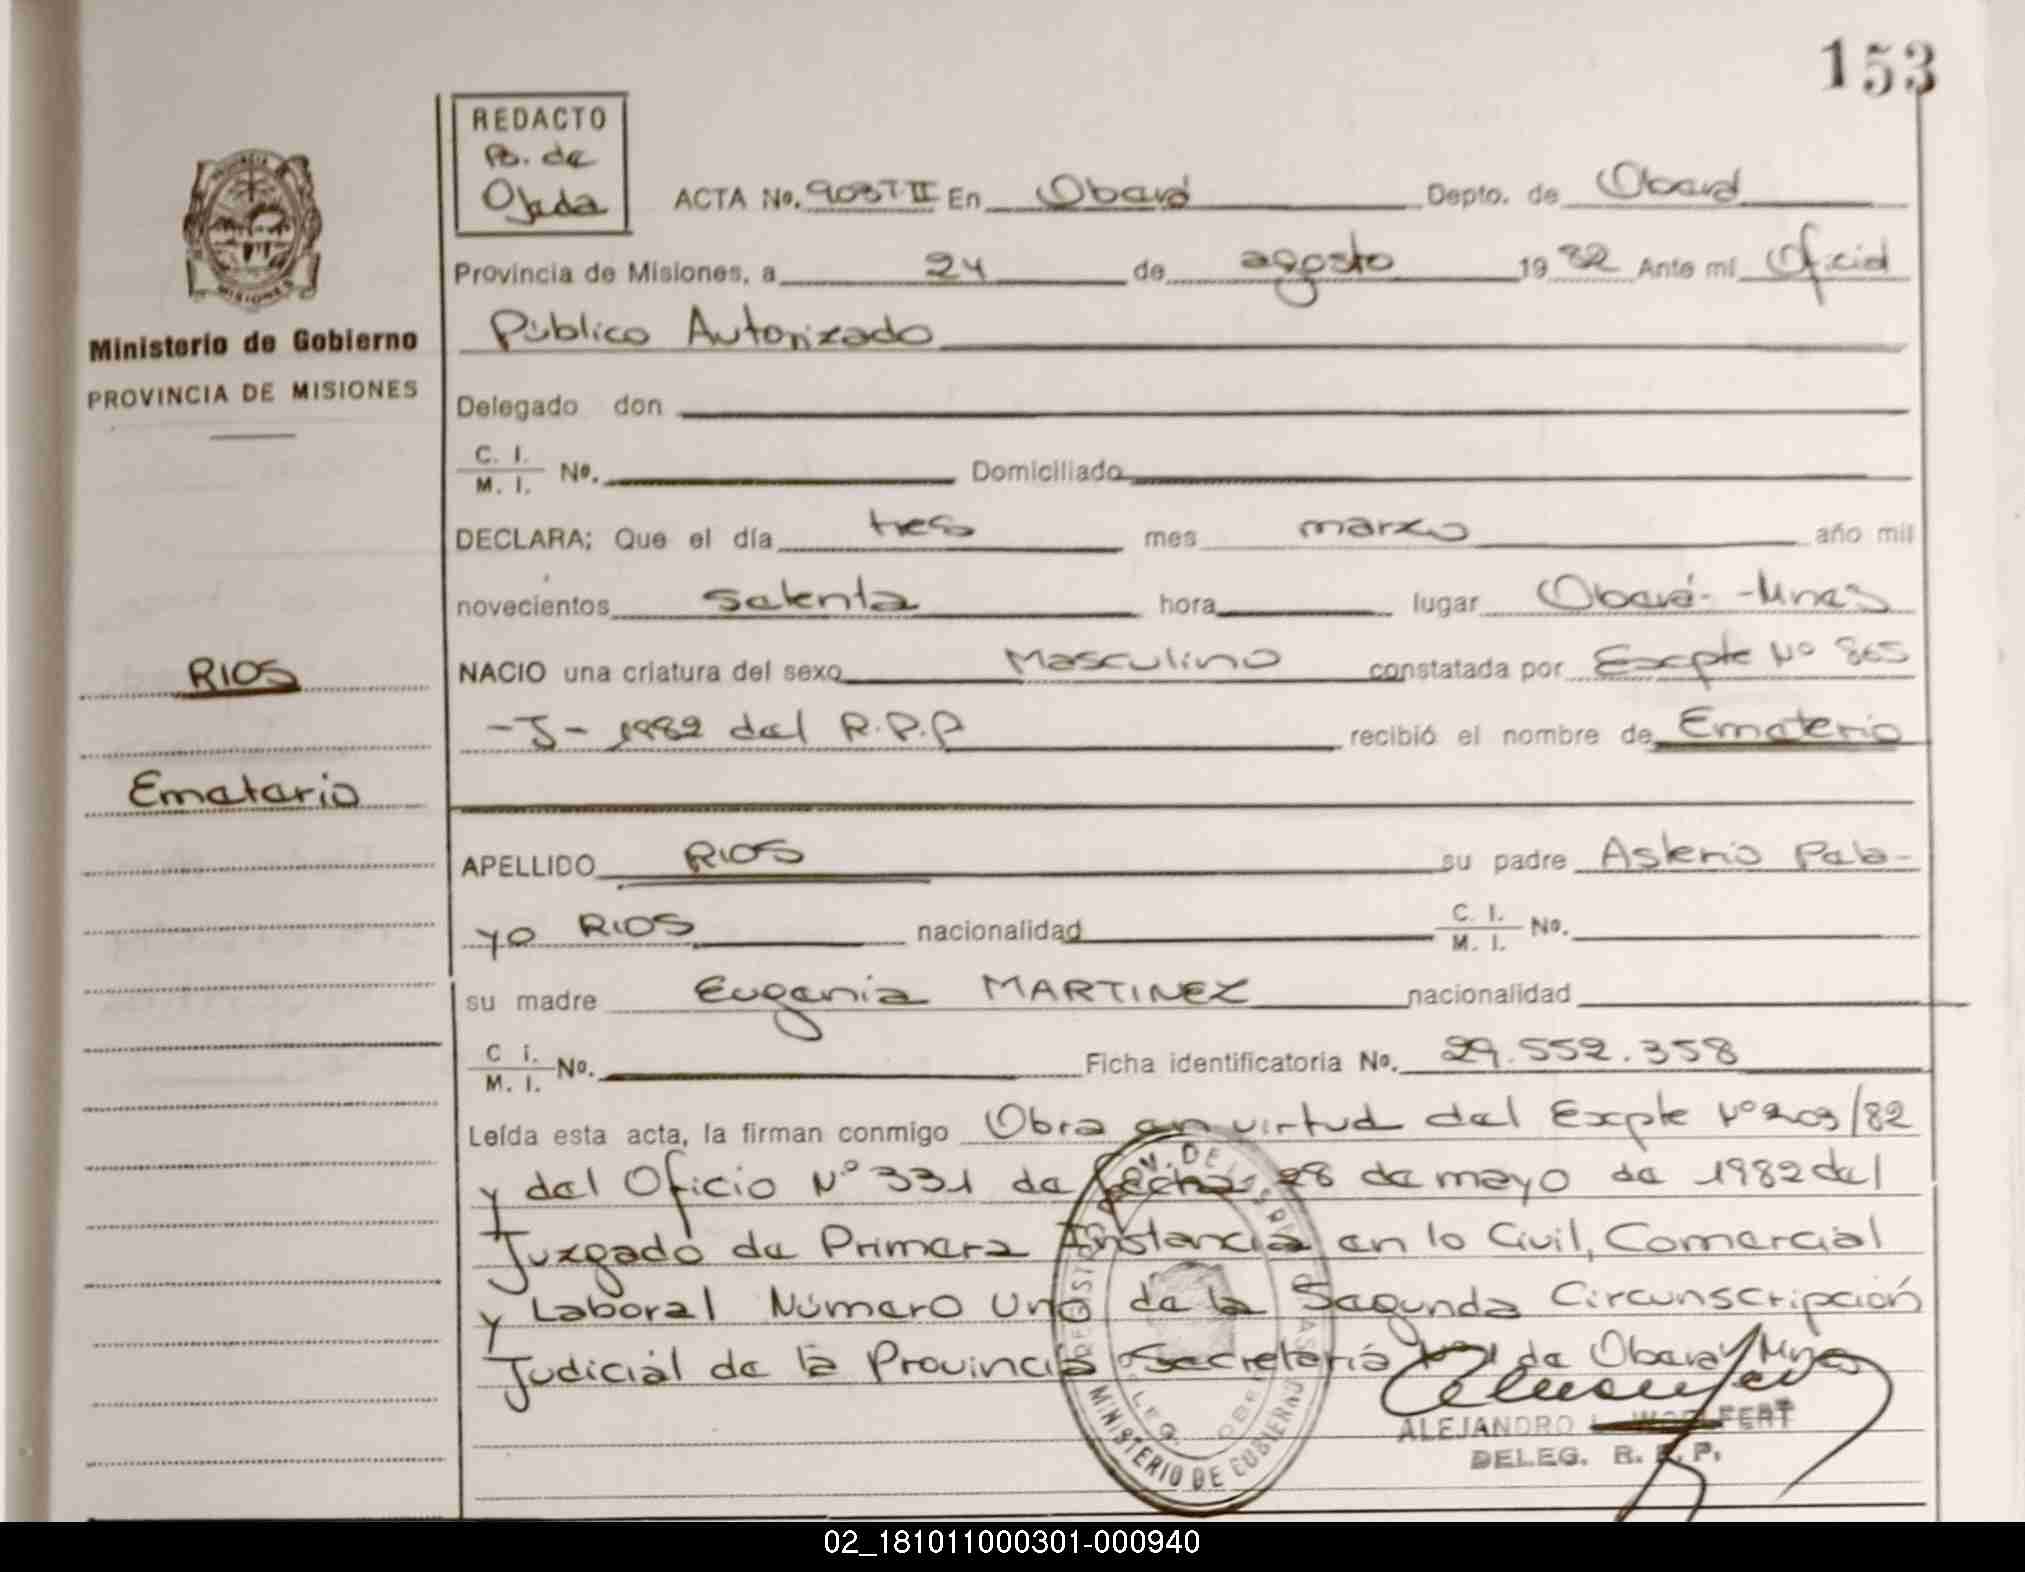 153
REDACTO
Po. de
Ojeda
ACTA No. 903 T II En Oberá Depto. de Oberá
Provincia de Misiones, a 24 de agosto 19 82 Ante mi Oficial
Público Autorizado
Ministerio de Gobierno
PROVINCIA DE MISIONES
MISIONES
Delegado don
C. I.
M. I. No. Domiciliado
DECLARA; Que el día tres mes marzo año mil
novecientos setenta hora lugar Oberá - Mnes
RIOS
NACIO una criatura del sexo Masculino constatada por Excpte Nº 865
-J- 1982 del R.P.P recibió el nombre de Emeterio
Emeterio
APELLIDO RIOS su padre Asterio Pela-
yo RIOS nacionalidad C. I.
M. I. No.
su madre Eugenia MARTINEZ nacionalidad
C i.
M. I. No. Ficha identificatoria No. 29.552.358
Leída esta acta, la firman conmigo Obra en virtud del Excpte Nº 209/82
y del Oficio Nº 331 de fecha 28 de mayo de 1982 del
Juzgado de Primera Instancia en lo Civil, Comercial
y Laboral Número Uno de la Segunda Circunscripción
Judicial de la Provincia Secretaria de Oberá Mnes
MINISTERIO DE GOBIERNO
ALEJANDRO
DELEG. R. P. P.
02_181011000301-000940